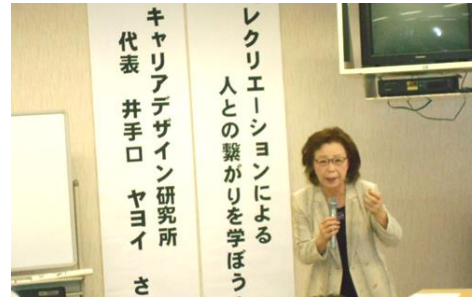 レクリエーションによる
人との繋がりを学ぼう
キャリアデザイン研究所
代表 井手口 ヤヨイ さ